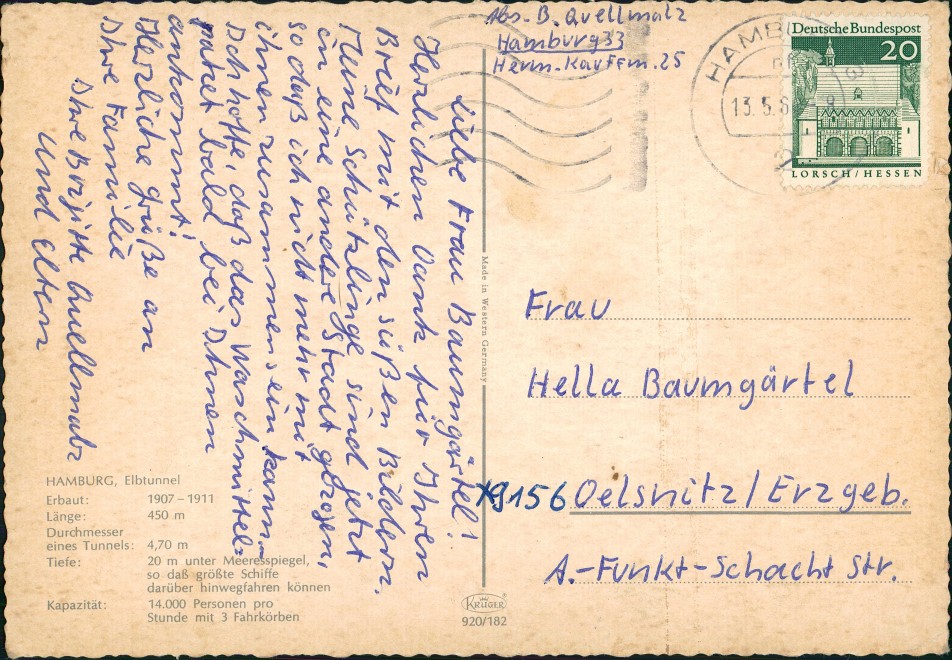 Abs. B. Quellmalz
Hamburg 33
Herm.-Kauffm. 25
HAMB
13.5.6
Deutsche Bundespost
20
LORSCH / HESSEN
Liebe Frau Baumgärtel!
Herlichen Dank für Ihren
Brief mit den süßen Bildern.
Meine Schützlinge sind jetzt
in eine andere Stadt gezogen,
so daß ich nicht mehr mit
ihnen zusammen sein kann. –
Ich hoffe, daß das Waschmittel-
paket bald bei Ihnen
ankommt!
Herzliche Grüße an
Ihre Familie
Ihre Brigitte Quellmalz
und Eltern
Made in Western Germany
Frau
Hella Baumgärtel
X9156 Oelsnitz/Erzgeb.
A.-Funkt-Schacht Str.
HAMBURG, Elbtunnel
Erbaut: 1907 – 1911
Länge: 450 m
Durchmesser
eines Tunnels: 4,70 m
Tiefe: 20 m unter Meeresspiegel,
so daß größte Schiffe
darüber hinwegfahren können
Kapazität: 14.000 Personen pro
Stunde mit 3 Fahrkörben
KRÜGER
920/182